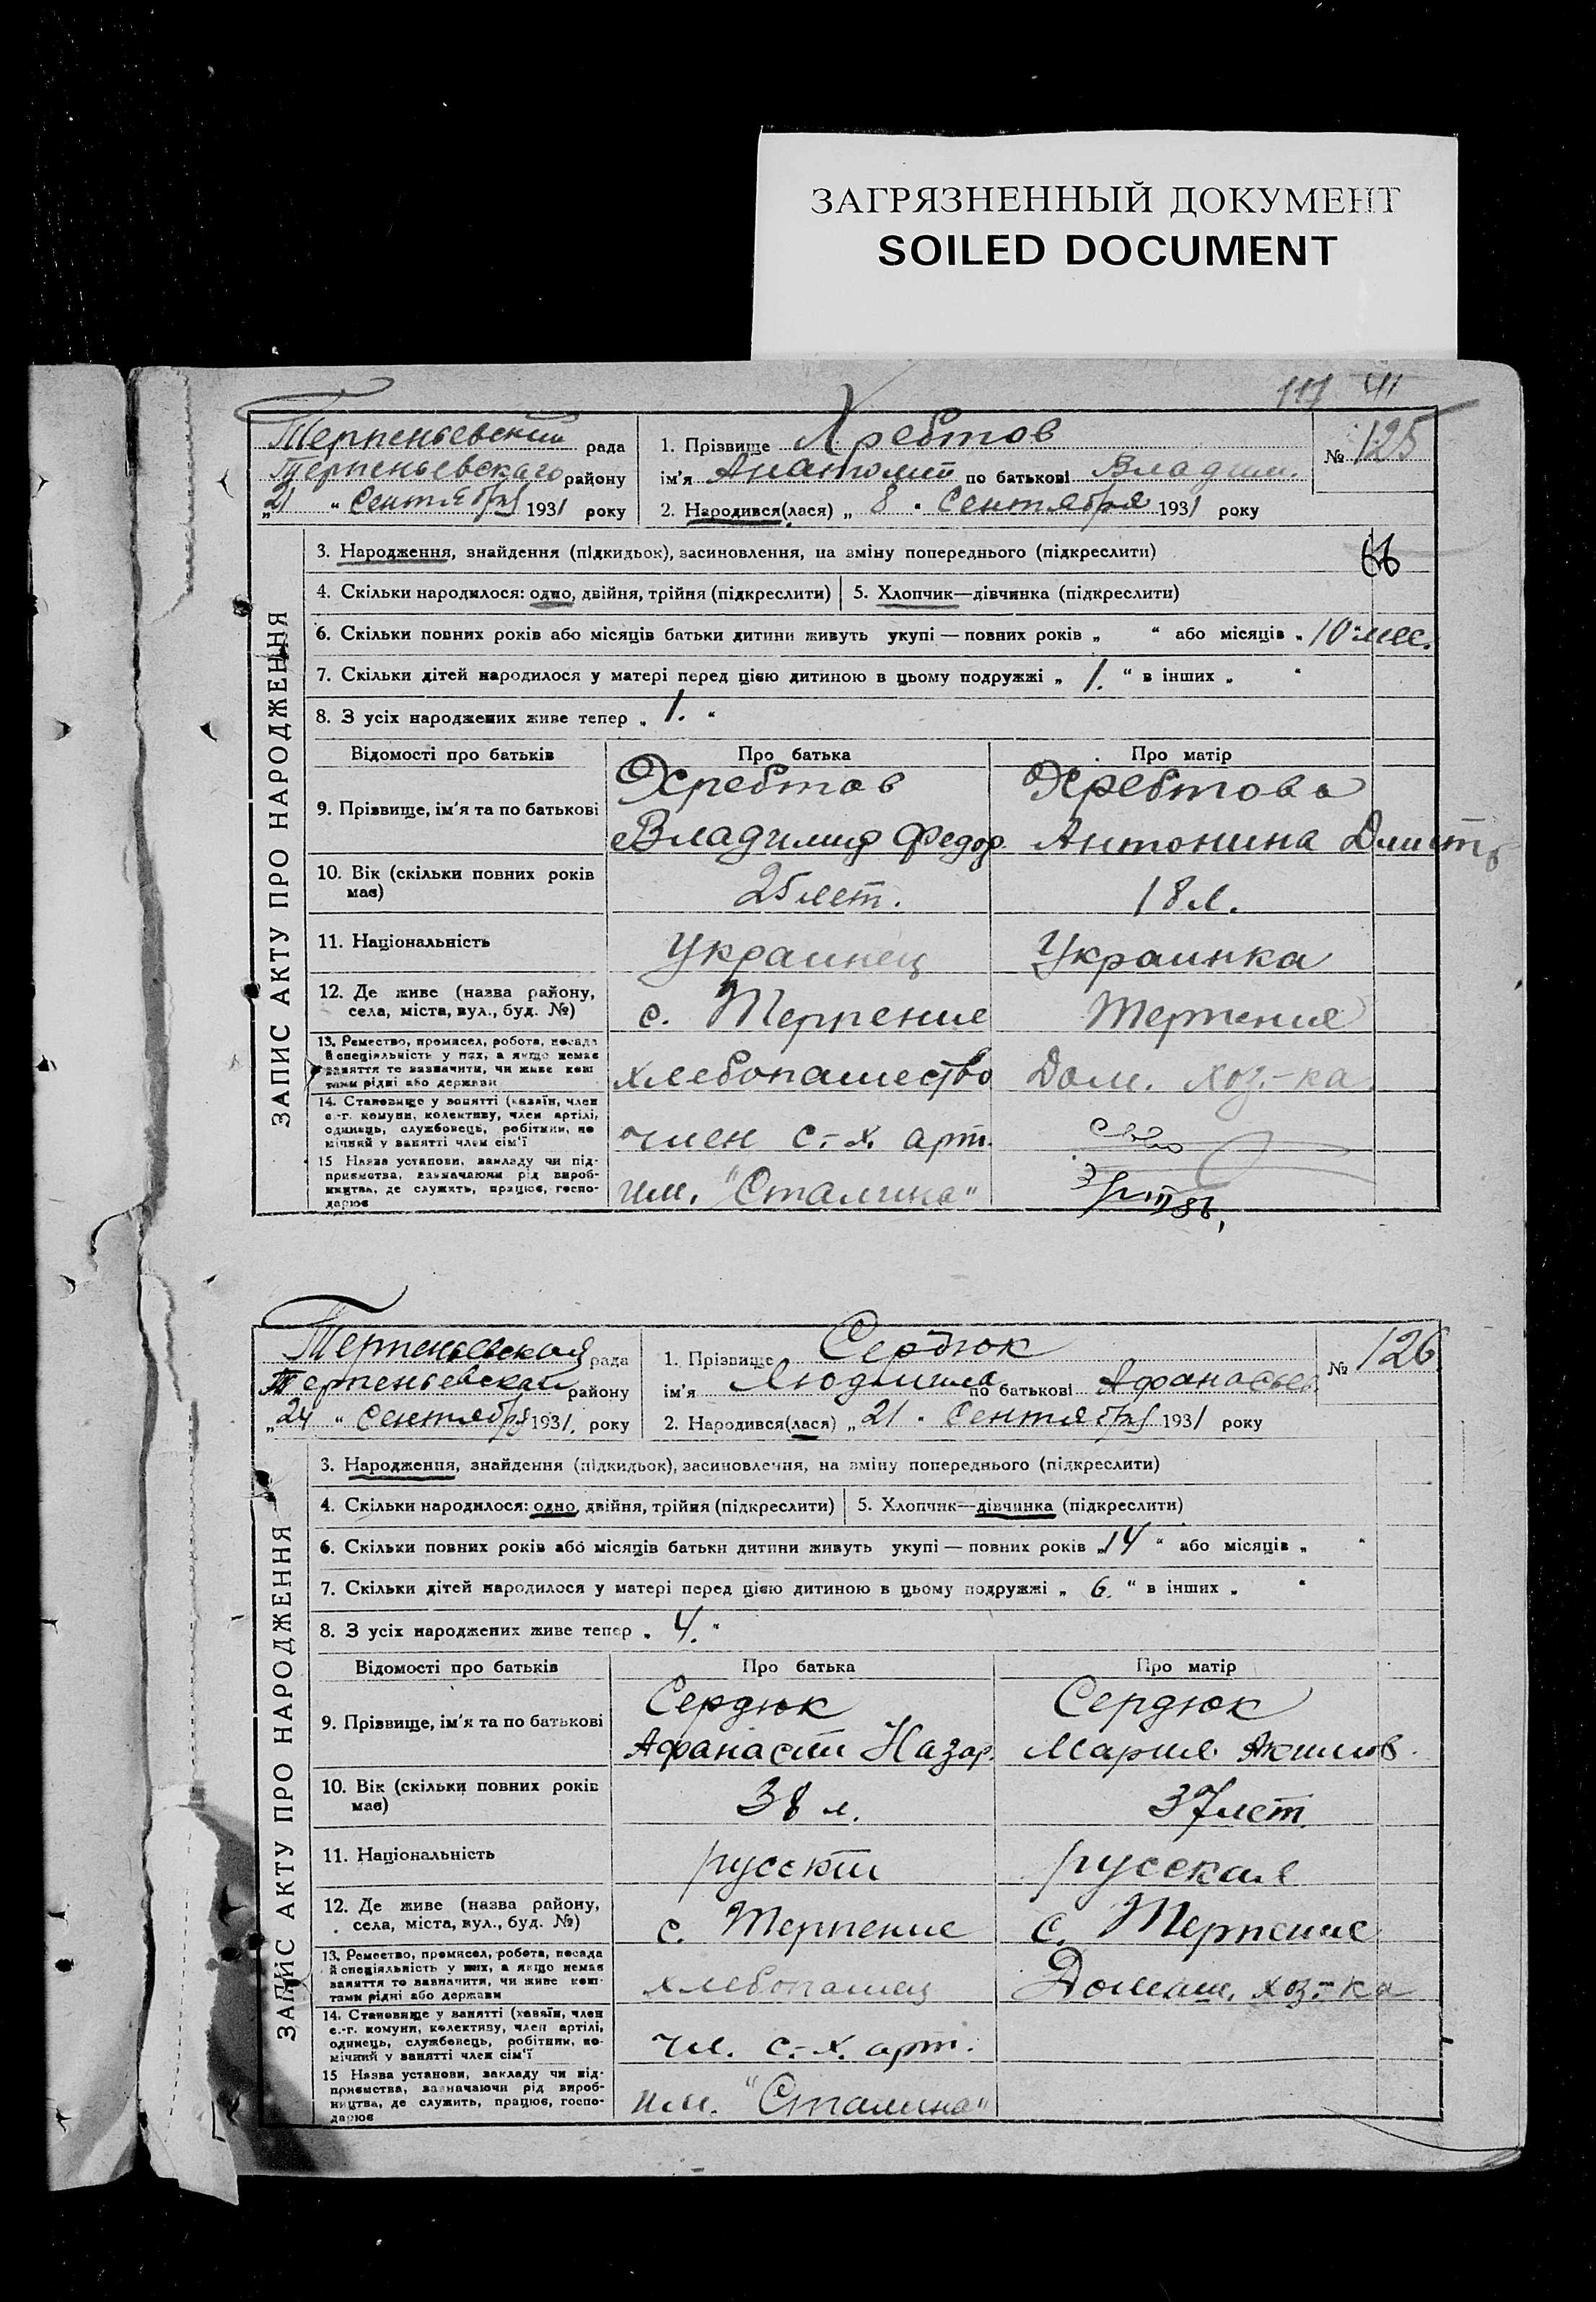 ЗАГРЯЗНЕННЫЙ ДОКУМЕНТ
SOILED DOCUMENT
117 41
Терпеньевский рада
Терпеньевскаго району
„21 “ Сентября 1931 року
1. Прізвище Хребтов
ім'я Анатолий по батькові Владим.
2. Народився(лася) „ 8 “ Сентября 1931 року
№ 125
ЗАПИС АКТУ ПРО НАРОДЖЕННЯ
3. Народження, знайдення (підкидьок), засиновлення, на зміну попереднього (підкреслити)
4. Скільки народилося: одно, двійня, трійня (підкреслити) 5. Хлопчик—дівчинка (підкреслити)
6. Скільки повних років або місяців батьки дитини живуть укупі — повних років „ “ або місяців „ 10 “ мес.
7. Скільки дітей народилося у матері перед цією дитиною в цьому подружжі „ 1. “ в інших „ “
8. З усіх народжених живе тепер „ 1. “
Відомості про батьків Про батька Про матір
9. Прізвище, ім'я та по батькові
Хребтов
Владимир Федор.
Хребтова
Антонина Дмит
10. Вік (скільки повних років має)
25 лет. 18 л.
11. Національність Украинец Украинка
12. Де живе (назва району,
села, міста, вул., буд. №)
с. Терпение Терпения
13. Ремество, промисел, робота, посада
й спеціяльність у них, а якщо немає
заняття то зазначити, чи живе кош-
тами рідні або держави
хлебопашество Дом. хоз.-ка
14. Становище у занятті (хазяїн, член
с.-г. комуни, колективу, член артілі,
одинець, службовець, робітник, по-
мічний у занятті член сім'ї
член с.-х. арт.
15 Назва установи, закладу чи під-
приємства, зазначаючи рід вироб-
ництва, де служить, працює, госпо-
дарює
им. "Сталина"
Терпеньевская рада
Терпеньевскай району
„24 “ Сентября 1931. року
1. Прізвище Сердюк
ім'я Людмила по батькові Афанасьев
2. Народився(лася) „ 21 “ Сентября 1931 року
№ 126
ЗАПИС АКТУ ПРО НАРОДЖЕННЯ
3. Народження, знайдення (підкидьок), засиновлення, на зміну попереднього (підкреслити)
4. Скільки народилося: одно, двійня, трійня (підкреслити) 5. Хлопчик—дівчинка (підкреслити)
6. Скільки повних років або місяців батьки дитини живуть укупі — повних років „ 14 “ або місяців „ “
7. Скільки дітей народилося у матері перед цією дитиною в цьому подружжі „ 6. “ в інших „ “
8. З усіх народжених живе тепер „ 4. “
Відомості про батьків Про батька Про матір
9. Прізвище, ім'я та по батькові
Сердюк
Афанасий Назар.
Сердюк
Мария Акимов.
10. Вік (скільки повних років
має)
38 л. 37 лет.
11. Національність русский русская
12. Де живе (назва району,
села, міста, вул., буд. №)
с. Терпение с. Терпение
13. Ремество, промисел, робота, посада
й спеціяльність у них, а якщо немає
заняття то зазначити, чи живе кош-
тами рідні або держави
хлебопашец Домаш. хоз.-ка
14. Становище у занятті (хазяїн, член
с.-г. комуни, колективу, член артілі,
одинець, службовець, робітник, по-
мічний у занятті член сім'ї
чл. с.-х. арт.
15 Назва установи, закладу чи під-
приємства, зазначаючи рід вироб-
ництва, де служить, працює, госпо-
дарює
им. "Сталина"